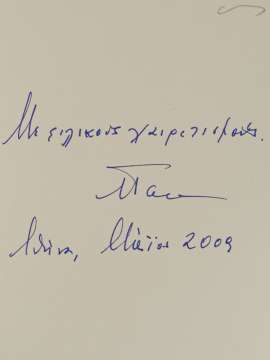 Με φιλικούς χαιρετισμούς.
Αθήνα, Μάϊος 2009